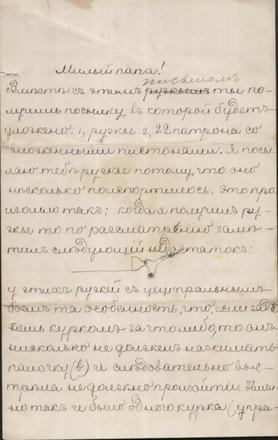 Милый папа!
письмомъ
Вмѣстѣ съ этимъ ружьемъ ты по-
лучишь посылку, въ которой будетъ
уложено: 1, ружье 2, 22 патрона со
вложенными пистонами. Я посы-
лаю тебѣ ружье потому, что оно
нѣсколько попортилось. Это про-
изошло такъ: когда я получилъ ру-
жье то по разсматрѣнію замѣ-
тилъ слѣдующій недостатокъ:
у этихъ ружей съ центральнымъ
боемъ та особенность, что, если
куркомъ за что нибудь
нисколько не долженъ нажимать
палочку (в) и слѣдовательно выс-
трѣла не должно произойти.
но такъ и было одного курка (